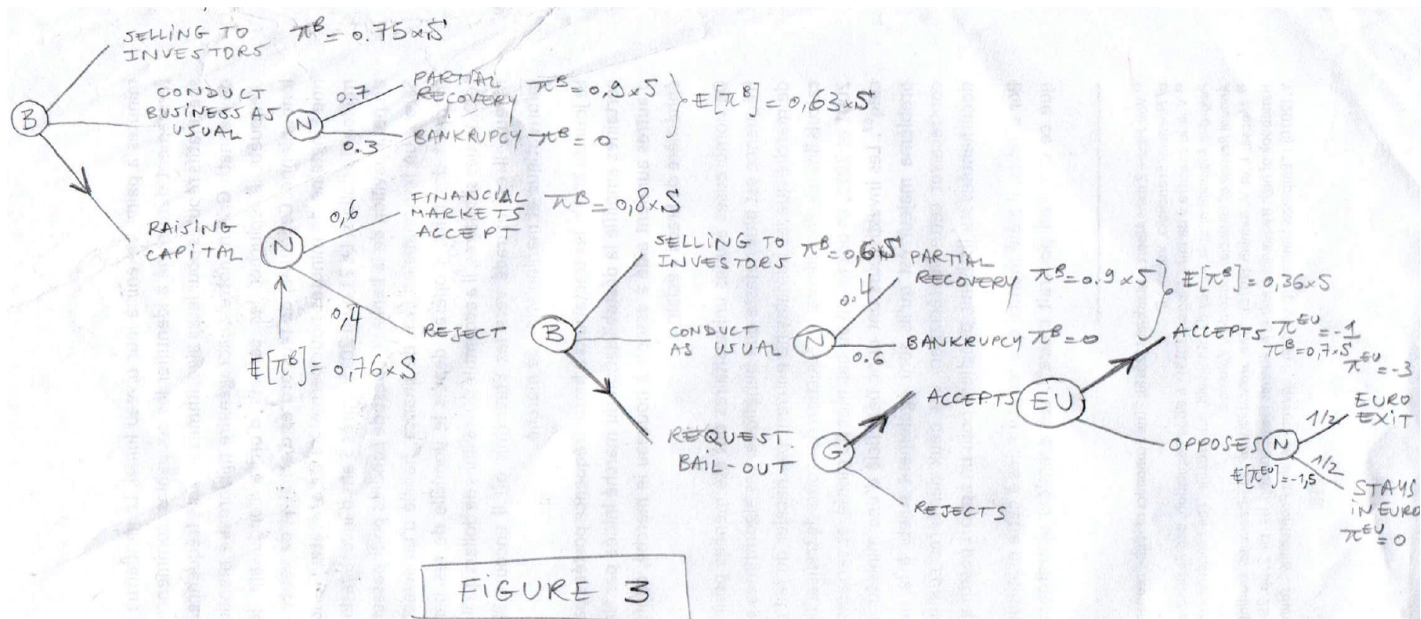 SELLING TO
INVESTORS
π^B = 0.75×S
B
CONDUCT
BUSINESS AS
USUAL
N
0.7
PARTIAL
RECOVERY
π^B = 0,9×S
0.3
BANKRUPCY
π^B = 0
E[π^B] = 0,63×S
RAISING
CAPITAL
N
0,6
FINANCIAL
MARKETS
ACCEPT
π^B = 0,8×S
0,4
REJECT
E[π^B] = 0,76×S
B
SELLING TO
INVESTORS
π^B = 0,6S
CONDUCT
AS USUAL
N
0.4
PARTIAL
RECOVERY
π^B = 0.9×S
0.6
BANKRUPCY π^B = 0
E[π^B] = 0,36×S
REQUEST
BAIL-OUT
G
ACCEPTS
REJECTS
EU
ACCEPTS
π^EU = -1
π^B = 0,7×S
OPPOSES
N
E[π^EU] = -1,5
π^EU = -3
1/2
EURO
EXIT
1/2
STAYS
IN EURO
π^EU = 0
FIGURE 3